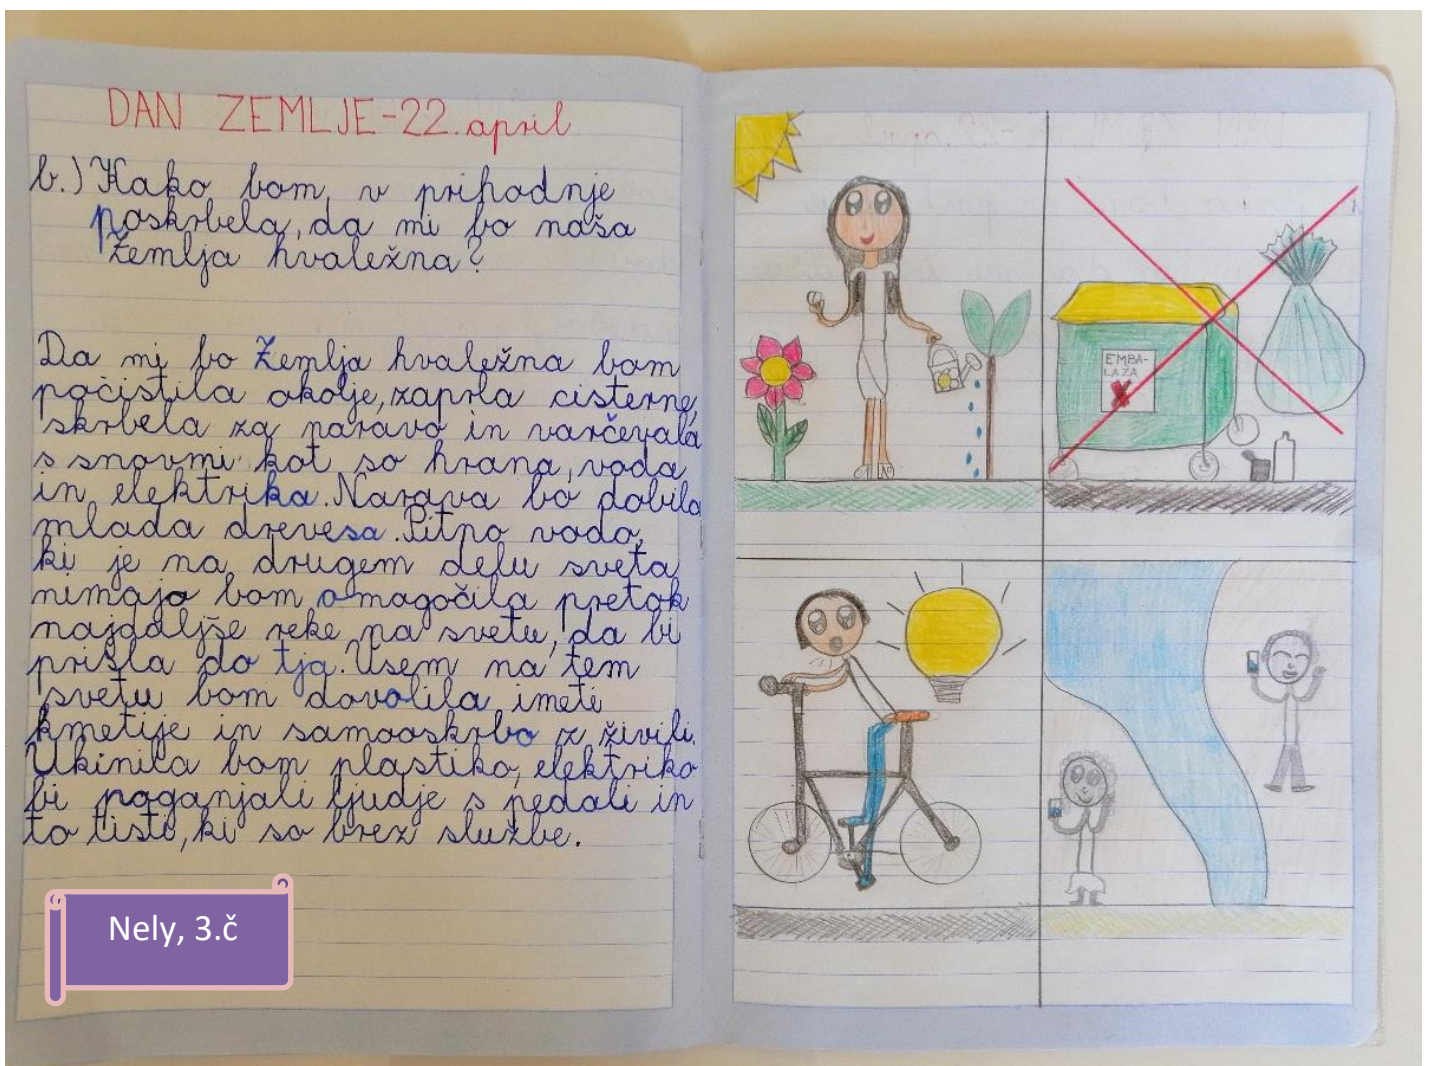 DAN ZEMLJE-22.april
b.) Kako bom v prihodnje
poskrbela, da mi bo naša
Zemlja hvaležna?
Da mi bo Zemlja hvaležna bom
počistila okolje, zaprla cisterne,
skrbela za naravo in varčevala
s snovmi kot so hrana, voda
in elektrika. Narava bo dobila
mlada drevesa. Pitno vodo,
ki je na drugem delu sveta
nimajo bom omogočila pretok
najdaljše reke na svetu, da bi
prišla do tja. Vsem na tem
svetu bom dovolila imeti
kmetije in samooskrbo z živili.
Ukinila bom plastiko, elektriko
bi poganjali ljudje s pedali in
to tisti, ki so brez službe.
Nely, 3.č
EMBA-
LAŽA